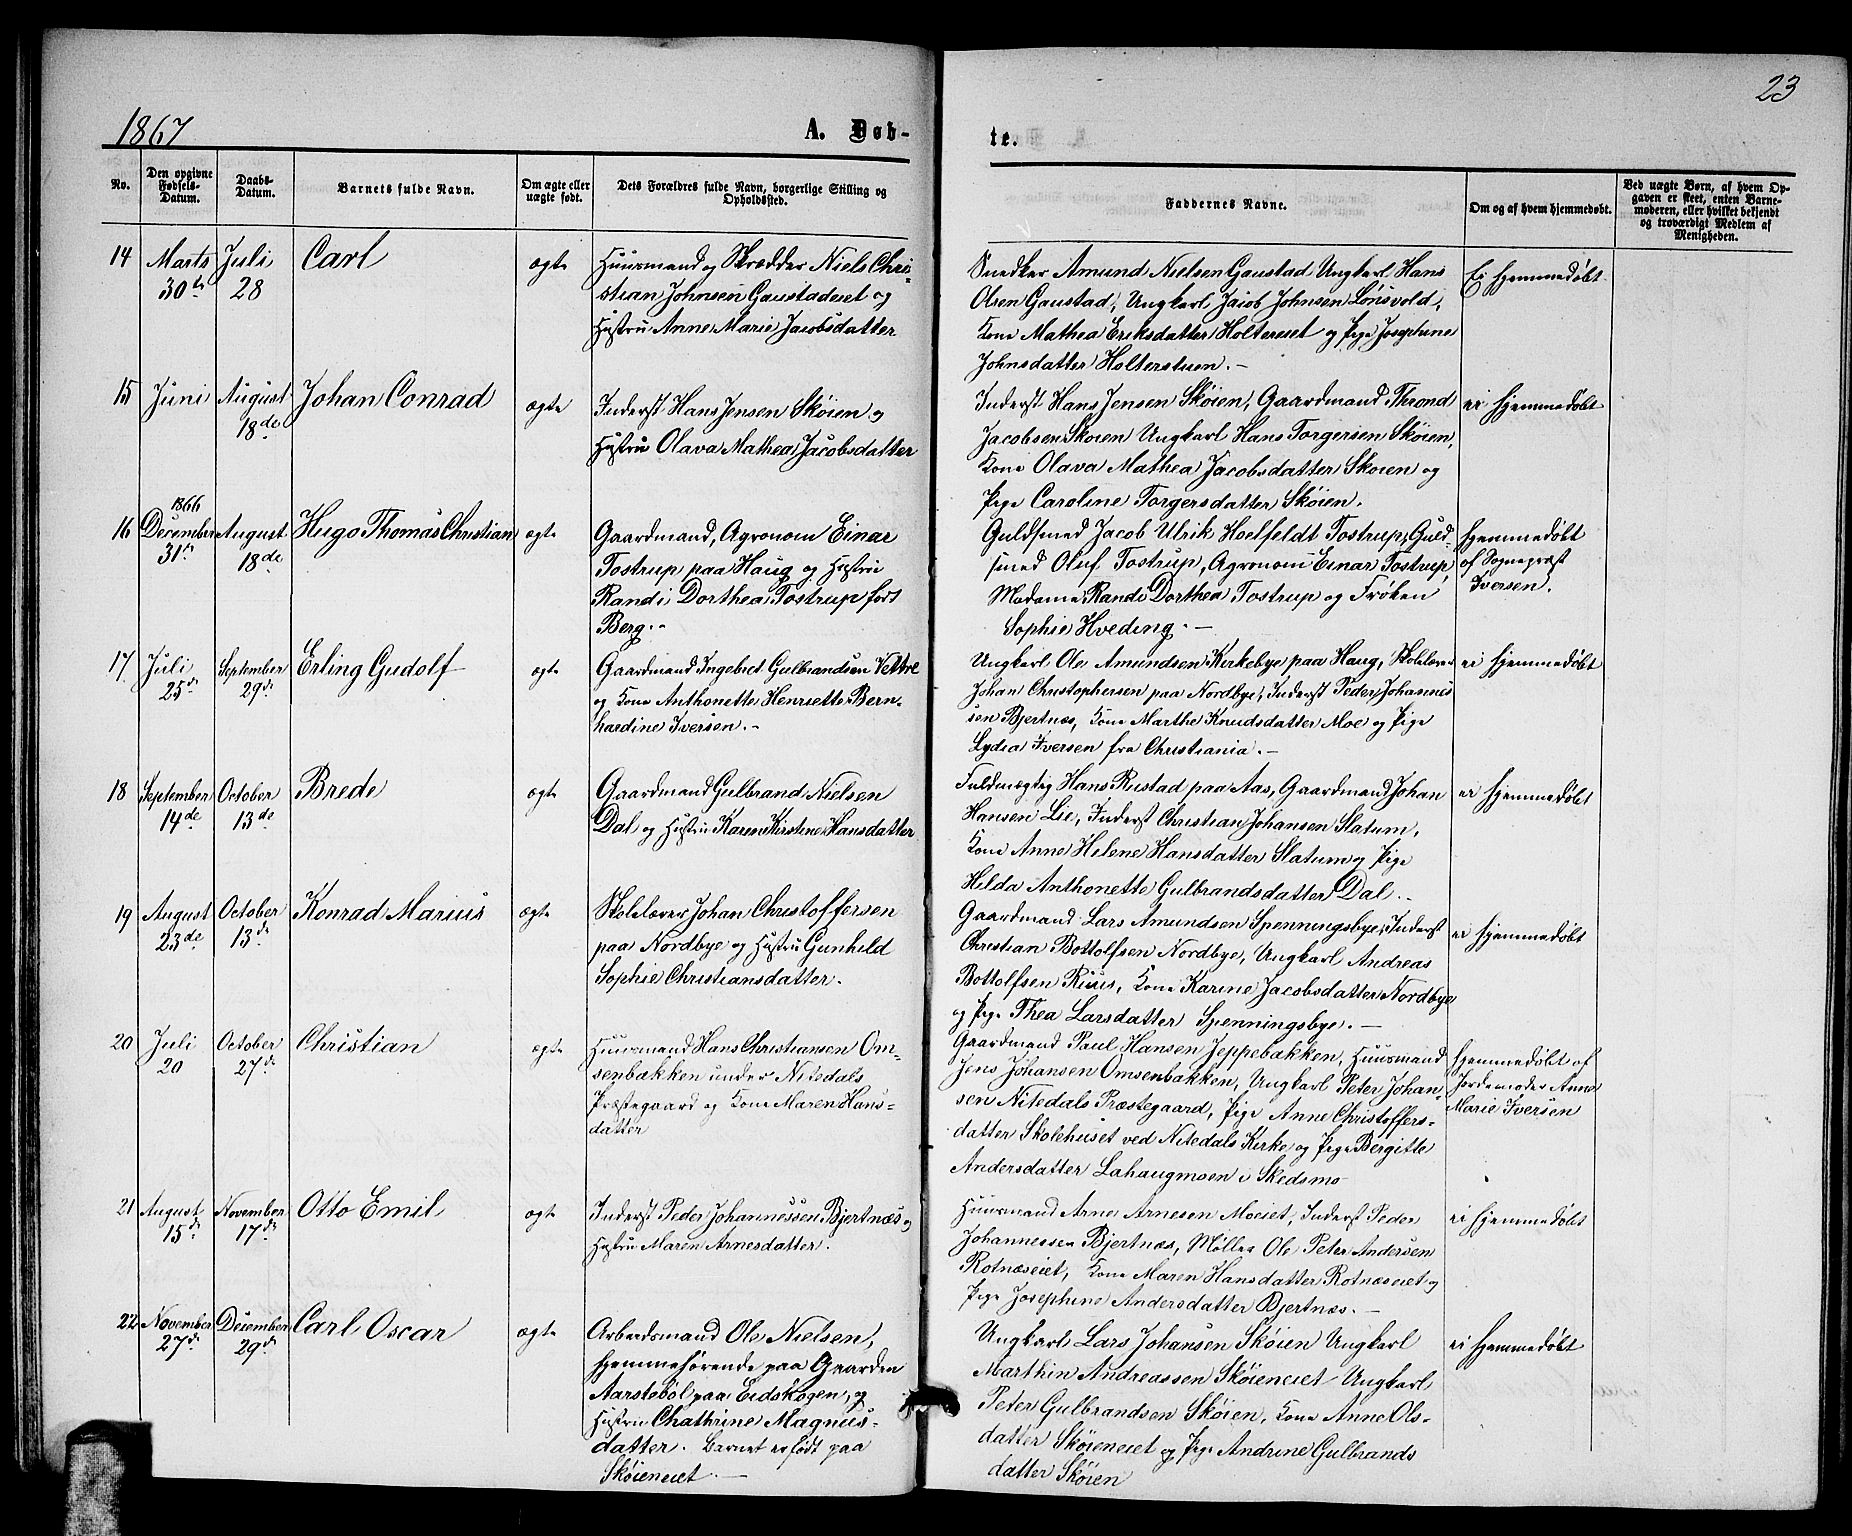 23
1867
A. Døb-
te.
No.
Den opgivne
Fødsels-
Datum.
Daabs-
Datum.
Barnets fulde Navn.
Om ægte eller
uægte født.
Dets Forældres fulde Navn, borgerlige Stilling og
Opholdssted.
Faddernes Navne.
Om og af hvem hjemmedøbt.
Ved uægte Børn, af hvem Op-
gaven er skeet, enten Barne-
moderen, eller hvilket bekjendt
og troværdigt Medlem af
Menigheden.
14
Marts
30te
Juli
28
Carl
ægte
Huusmand og Skrædder Niels Chri-
stian Johnsen Gaustadeiet og
Hustru Anne Marie Jacobsdatter
Snedker Amund Nielsen Gaustad Ungkarl Hans
Olsen Gaustad, Ungkarl Jacob Johnsen Lønsvold,
Kone Mathea Eriksdatter Holtereiet og Pige Josephine
Johnsdatter Holterstuen.-
Ei hjemmedøbt.
15
Juni
August
18de
Johan Conrad
ægte
Inderst Hans Jensen Skøien og
Hustru Olava Mathea Jacobsdatter
Inderst Hans Jensen Skøien, Gaardmand Thrond
Jacobsen Skoien Ungkarl Hans Torgersen Skøien,
Kone Olava Mathea Jacobsdatter Skoien og
Pige Caroline Torgersdatter Skøien.
ei hjemmedøbt
16
1866
December
31te
August
18de
Hugo Thomas Christian
ægte
Gaardmand, Agronom Einar
Tostrup paa Haug og Hustru
Randi Dorthea Tostrup født
Berg.-
Guldsmed Jacob Ulrik Hoelfeldt Tostrup, Guld-
smed Oluf Tostrup, Agronom Einar Tostrup,
Madame Randi Dorthea Tostrup og Frøken
Sophie Hveding.-
hjemmedøbt
af Sognepræst
Iversen.
17
Juli
25de
September
29de
Erling Gudolf
ægte
Gaardmand Ingebret Gulbrandsen Vettre
og Kone Anthonette Henriette Bern-
hardine Iversen.-
Ungkarl Ole Amundsen Kirkebye paa Haug, Skolelærer
Johan Christophersen paa Nordbye, Inderst Peder Johannes
sen Bjertnæs, Kone Marthe Knudsdatter Moe og Pige
Lydia Iversen fra Christiania.-
ei hjemmedøbt
18
September
14de
October
13de
Brede
ægte
Gaardmand Gulbrand Nielsen
Dal og Hustru Karen Kirstine Hansdatter
Fuldmægtig Hans Rustad paa Aas, Gaardmand Johan
Hansen Lie, Inderst Christian Johansen Slatum,
Kone Anne Helene Hansdatter Slatum og Pige
Hilda Anthonette Gulbrandsdatter Dal.-
ei hjemmedøbt
19
August
23de
October
13de
Konrad Marius
ægte
Skolelærer Johan Christoffersen
paa Nordbye og Hustru Gunhild
Sophie Christiansdatter.
Gaardmand Lars Amundsen Spenningsbye, Inderst
Christian Bottolfsen Nordbye, Ungkarl Andreas
Bottolfsen Riis, Kone Karine Jacobsdatter Nordbye
og Pige Thea Larsdatter Spenningsbye.-
ei hjemmedøbt
20
Juli
20
October
27de
Christian
ægte
Huusmand Hans Christiansen Om-
senbakken under Nitedals
Præstegaard og Kone Maren Hans-
datter
Gaardmand Paul Hansen Jeppebakken, Huusmand
Jens Johansen Omsenbakken, Ungkarl Peter Johan-
sen Nitedals Præstegaard, Pige Anne Christoffers-
datter Skolehuset ved Nitedals Kirke og Pige Bergitte
Andersdatter Lahaugmoen i Skedsmo
hjemmedøbt af
Jordemoder Anne
Marie Iversen
21
August
15de
November
17de
Otto Emil
ægte
Inderst Peder Johannessen Bjertnæs og
Hustru Maren Arnesdatter.
Huusmand Arne Arnesen Moeiet, Inderst Peder
Johannessen Bjertnæs, Møller Ole Peter Andersen
Rotnæseiet, Kone Maren Hansdatter Rotnæseiet og
Pige Josephine Andersdatter Bjertnæs.-
ei hjemmedøbt
22
November
27de
December
29de
Carl Oscar
ægte
Arbeidsmand Ole Nielsen,
hjemmehørende paa Gaarden
Aarstebøl paa Eidskogen, og
Hustru Chathrine Magnus-
datter. Barnet er født paa
Skøieneiet.-
Ungkarl Lars Johansen Skøien Ungkarl
Marthin Andreassen Skøieneiet Ungkarl
Peter Gulbrandsen Skøien, Kone Anne Ols-
datter Skøieneiet og Pige Andrine Gulbrands
datter Skøien
ei hjemmedøbt